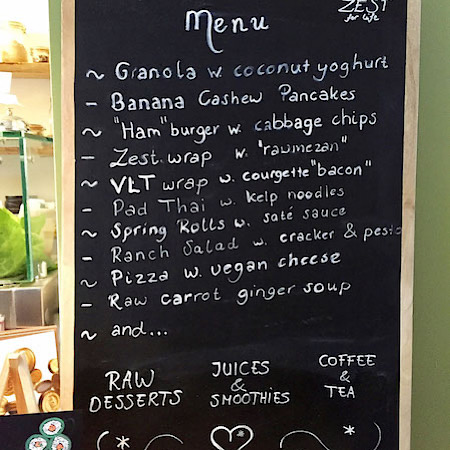 ZEST
for life
Menu
~ Granola w. coconut yoghurt
– Banana Cashew Pancakes
~ "Ham"burger w. cabbage chips
– Zest wrap w. "rawmezan"
~ VLT wrap w. courgette "bacon"
– Pad Thai w. kelp noodles
~ Spring Rolls w. saté sauce
– Ranch Salad w. cracker & pesto
~ Pizza w. vegan cheese
– Raw carrot ginger soup
~ and...
RAW
DESSERTS
JUICES
&
SMOOTHIES
COFFEE
&
TEA